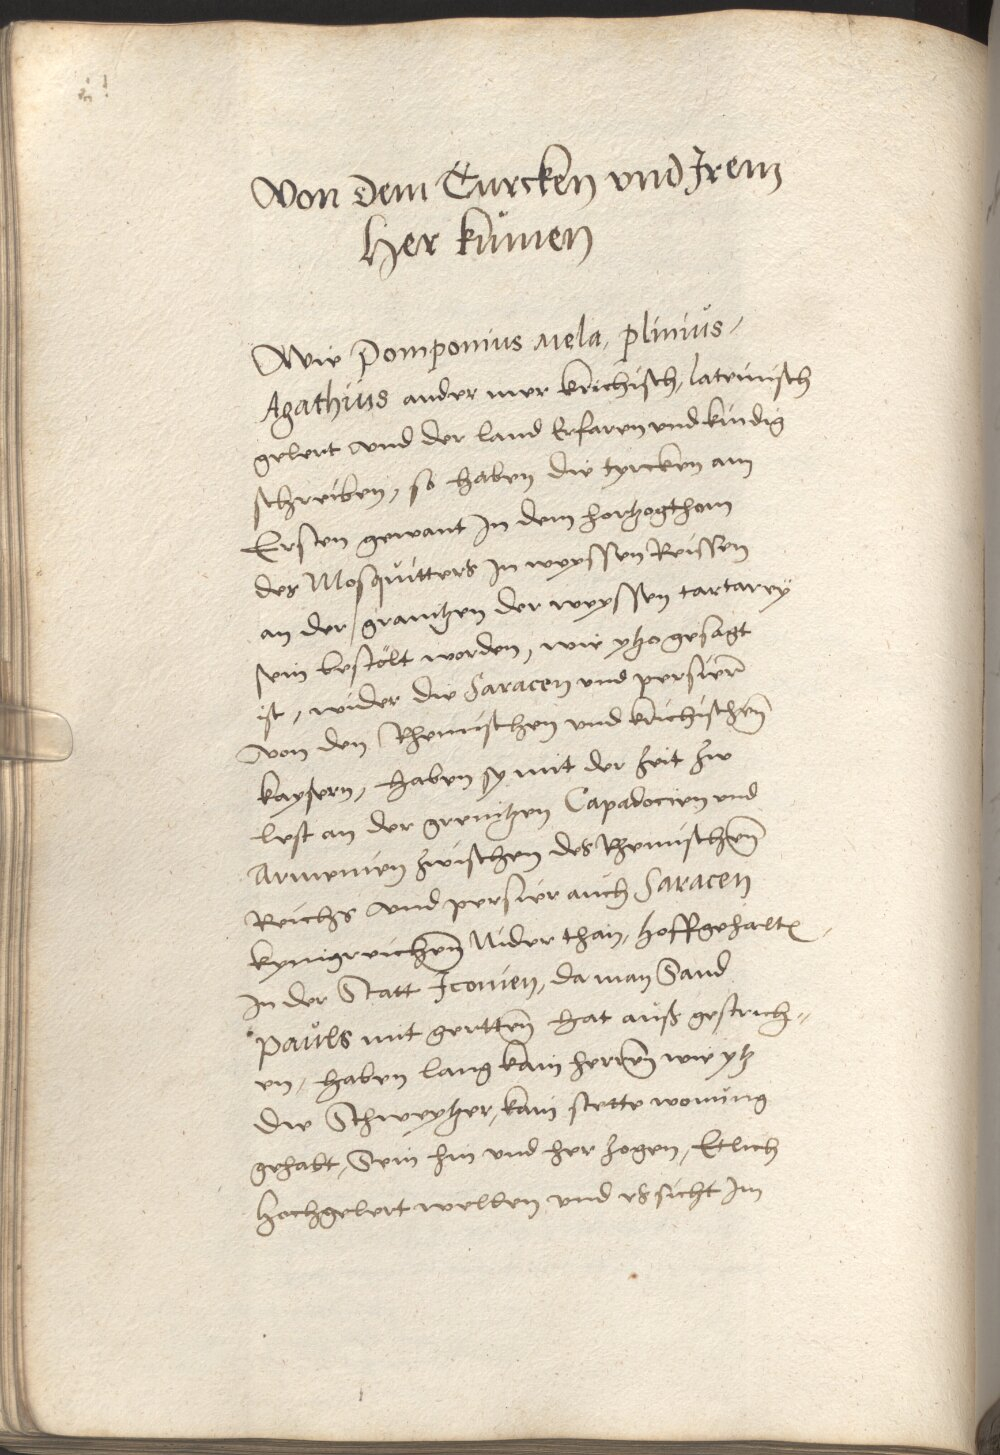 Von dem Türcken vnd Irem
her kumen
Wie Pomponius Mela, Plinius,
Agathius ander mer krichisch, lateinisch
gelert vnd der land Erfaren vnd kündig
schreiben, so haben die tyrcken am
Ersten gewant In dem hertzogthom
des Mosquitters In weyssen Reissen
an der grantzen der weyssen tartarey
sein bestölt worden, wie ytzo gesagt
ist, wider die Saracen vnd persier
von den Rhemischen vnd krichischen
kaysern, haben sy mit der Zeit Zw
lest an der grenitzen Capadocien vnd
Armenien zwischen des Rhemischen
Reichs vnd persier auch Saracen
kynigreichen Nider than, hoffgehalten
In der Statt Iconien, da man Sand
Pauls mit gertten hat auß gestrich-
en, haben lang kain herren wie ytz
die Schweytzer, kain stette wonung
gehabt, Sein hin vnd her Zogen, Etlich
hochgelert wellen vnd es sicht Im